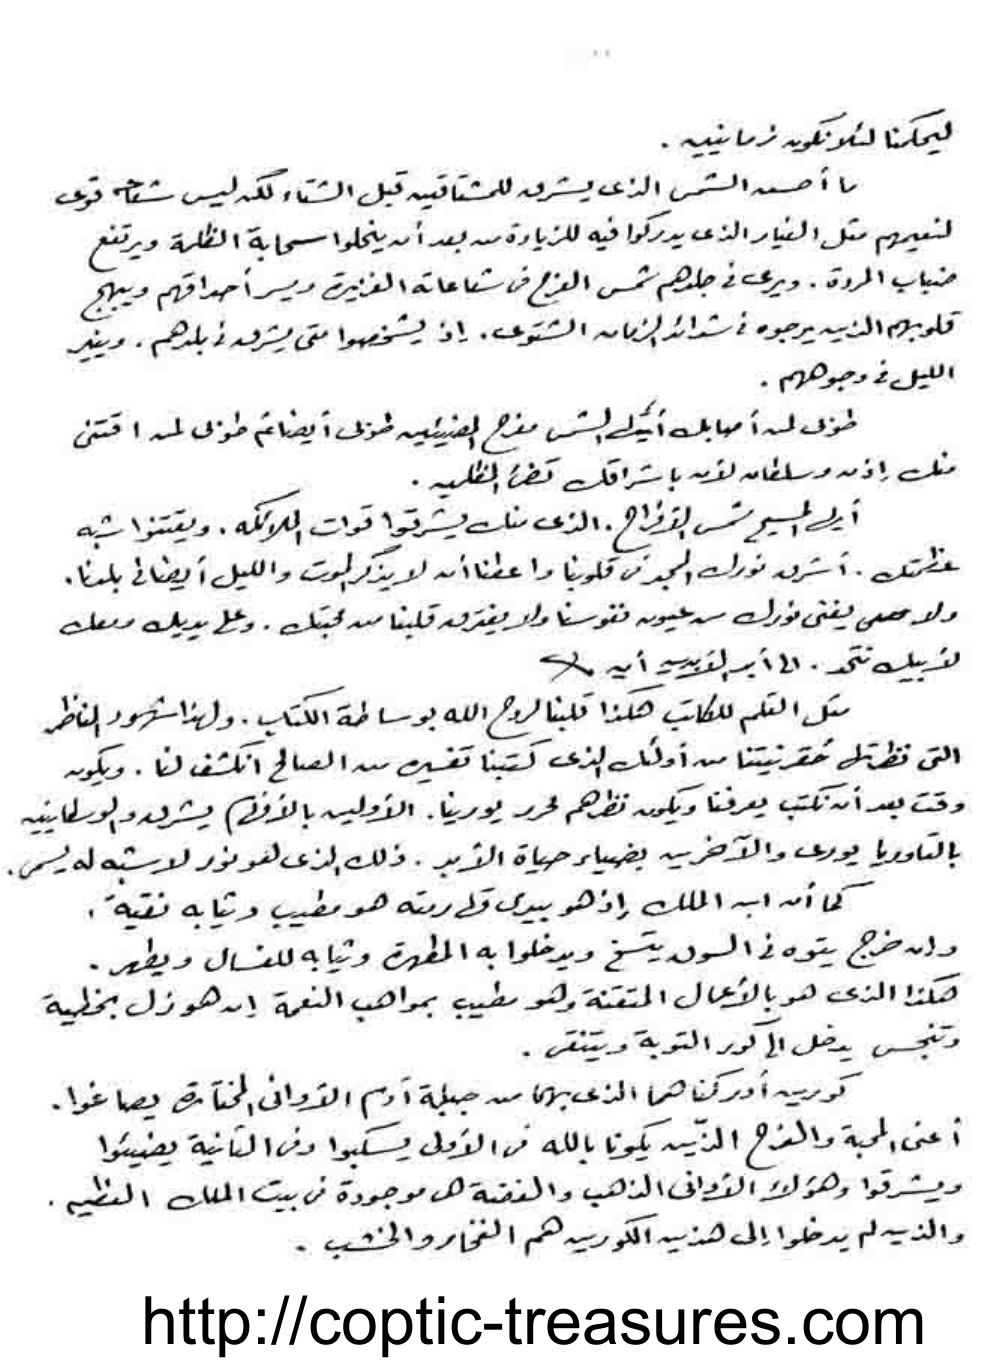 ليحكمنا لئلا نكون زمانيين .
ما أحسن الشمس الذى يشرق للمشتاقين قبل الشتاء لكن ليس شعاعه قوى
لنعيمهم مثل الغيار الذى يدركوا فيه للزيادة من بعد أن ينحلوا سحابة الظلمة ويرتفع
ضباب المردة . ويرى فى جلدهم شمس الفرح فى شعاعاته الغزيرة ويسر أحداقهم ويبهج
قلوبهم الذين يرجوه فى شدائد الزمان الشتوى . إذ يشخصوا متى يشرق فى بلدهم . وينير
الليل فى وجوههم .
طوبى لمن أصابك أيها الشمس مفرح المضيئين طوبى أيضاً ثم طوبى لمن اقتنى
منك إذن وسلطان لأن باشراقك تضئ المظلمين .
أيها المسيح شمس الأفراح . الذى منك يشرقوا قوات الملائكة . ويقتنوا شبه
عظمتك . أشرق نورك المجيد فى قلوبنا واعطنا أن لا يذكر الموت والليل أيضاً فى بلدنا .
ولا يفنى نورك من عيون نفوسنا ولا يفترق قلبنا من محبتك . وعلى يديك ومعك
لأبيك نتحد . الى أبد الآبدين أمين
مثل القلم للكاتب هكذا قلبنا لروح الله بوساطة الكتاب . ولهذا شهود المناظر
التى نظرتها حقر نيتنا من أولئك الذى كتبنا تفسيره من الصالح انكشف لنا . ويكون
وقت بعد أن نكتب يعرفنا ويكون نظرهم محرر يورينا . الأولين بالأفهام يشرق والوسطانيين
بالتاوريا يورى والآخرين بضياء حياة الأبد . ذلك الذى لهو نور لا يشبه له يسمى .
كما أن ابن الملك إذ هو بيدى قلى رمته هو مطيب وثيابه نقية ،
وإن خرج يتوه فى السوق يتسخ ويدخلوا به المطهرة وثيابه للغسال ويطهر .
هكذا الذى هو بالأعمال المتقنة وهو مطيب بمواهب النعمة إن هو زل بخطية
وتنجس يدخل الى كور التوبة ويتنقى .
كورين أدركناهما الذى بهما من جبلة آدم الأوانى المختارة يصاغوا .
أعنى المحبة والفرح الذين يكونا بالله فى الأولى يسكبوا وفى الثانية يضيئوا
ويشرقوا وهؤلاء الأوانى الذهب والفضة هى موجودة فى بيت الملك العظيم .
والذين لم يدخلوا إلى هذين الكورين هم الفخار والخشب .
http://coptic-treasures.com